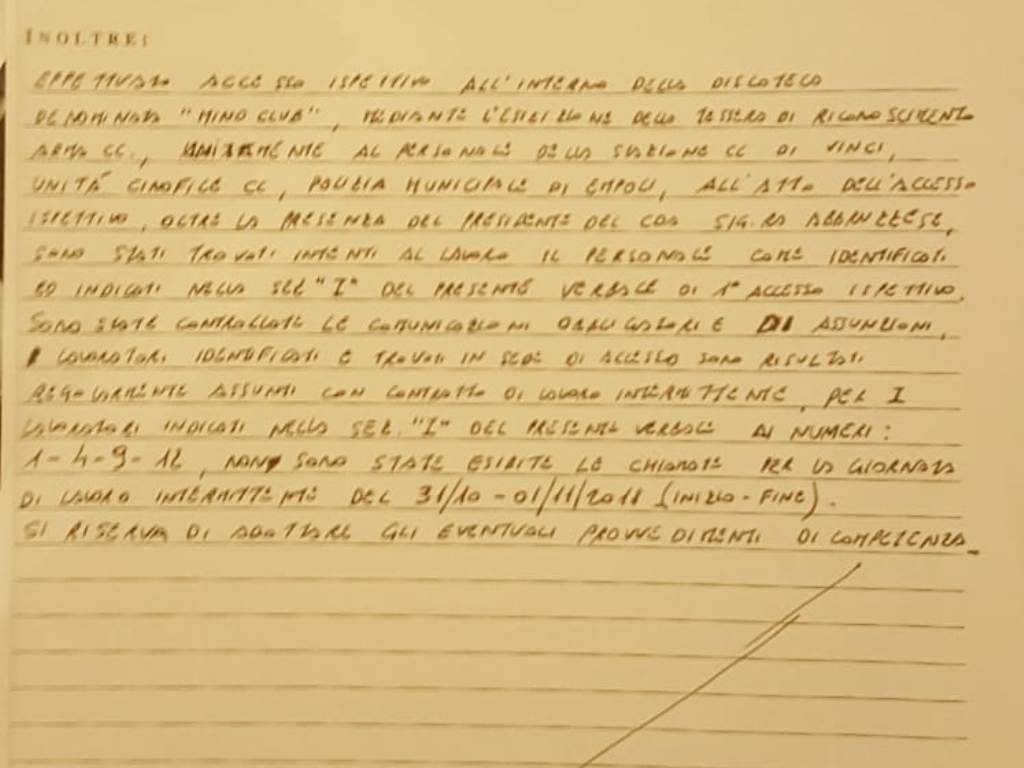 INOLTRE:
EFFETTUATO ACCESSO ISPETTIVO ALL'INTERNO DELLA DISCOTECA
DENOMINATA "MINO CLUB", MEDIANTE L'ESIBIZIONE DELLA TESSERA DI RICONOSCIMENTO
ARMA CC., UNITAMENTE AL PERSONALE DELLA STAZIONE CC DI VINCI,
UNITÀ CINOFILE CC, POLIZIA MUNICIPALE DI EMPOLI, ALL'ATTO DELL'ACCESSO
ISPETTIVO, OLTRE LA PRESENZA DEL PRESIDENTE DEL CDA SIG.RA
SONO STATI TROVATI INTENTI AL LAVORO IL PERSONALE COME IDENTIFICATI
ED INDICATI NELLA SEZ "I" DEL PRESENTE VERBALE DI 1° ACCESSO ISPETTIVO.
SONO STATE CONTROLLATE LE COMUNICAZIONI OBBLIGATORIE DI ASSUNZIONI,
I LAVORATORI IDENTIFICATI E TROVATI IN SEDE DI ACCESSO SONO RISULTATI
REGOLARMENTE ASSUNTI CON CONTRATTO DI LAVORO INTERMITTENTE, PER I
LAVORATORI INDICATI NELLA SEZ. "I" DEL PRESENTE VERBALE AI NUMERI:
1-4-9-12, NON SONO STATE ESIBITE LE CHIAMATE PER LA GIORNATA
DI LAVORO INTERMITTENTE DEL 31/10-01/11/2018 (INIZIO-FINE).
SI RISERVA DI ADOTTARE GLI EVENTUALI PROVVEDIMENTI DI COMPETENZA